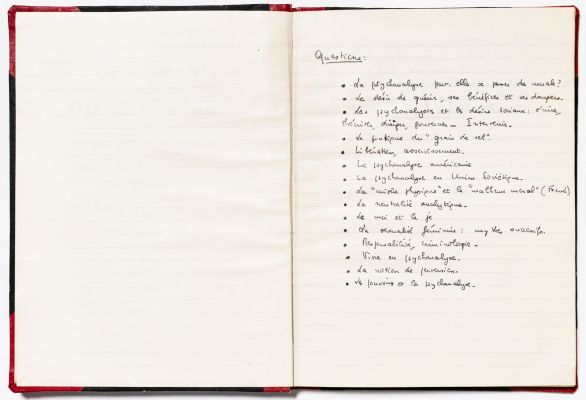 Questions :
• La psychanalyse peut-elle se passer de morale ?
• Le désir de guérir, ses bénéfices et ses dangers.
• Les psychanalystes et les désirs sociaux :
théoriser, diriger, gouverner – Intervenir.
• La pratique du "grain de sel"
• Libération, asservissement.
• La psychanalyse américaine
• La psychanalyse en Union Soviétique.
• La "misère physique" et le "malheur moral" (Freud)
• La neutralité analytique.
• Le moi et le je
• La sexualité féminine : mythes successifs.
• Responsabilité, criminologie.
• Vivre en psychanalyse.
• La notion de perversion.
• Le pouvoir et la psychanalyse.